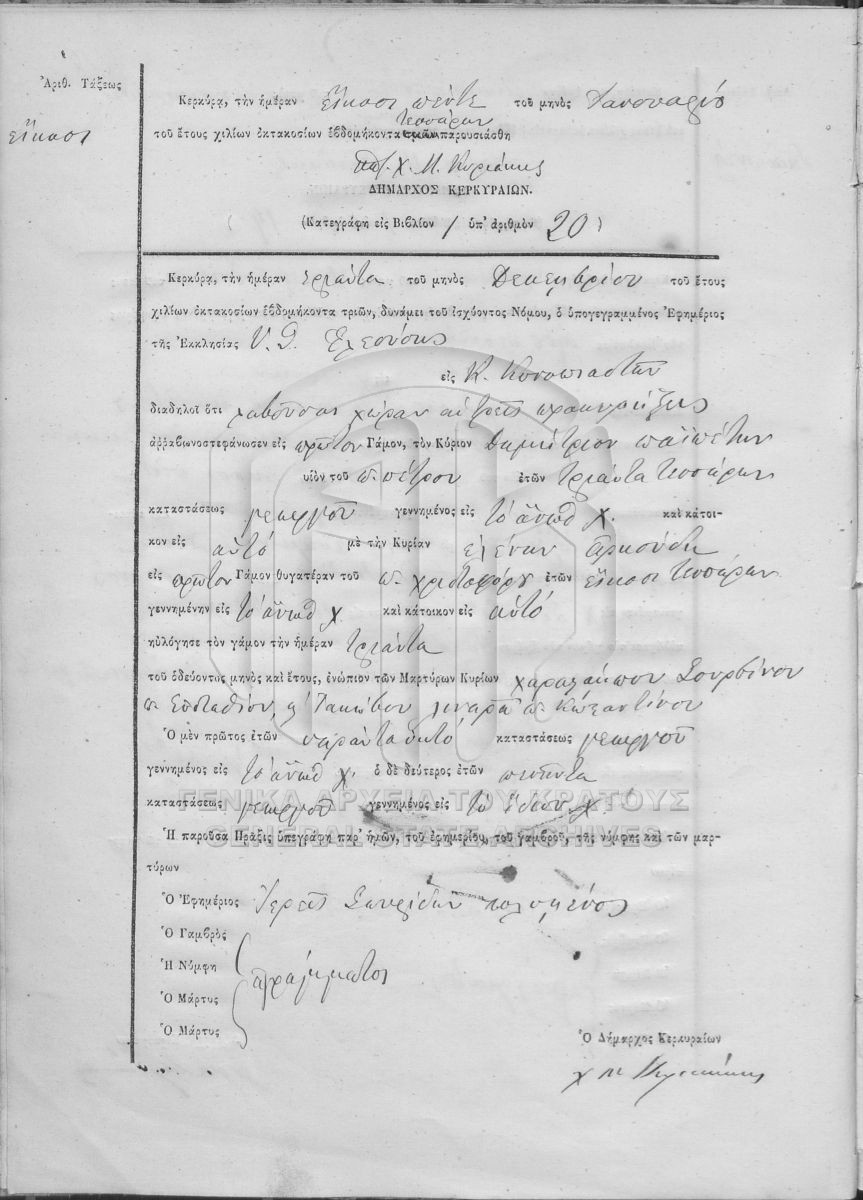 Ἀριθ. Τάξεως
εἴκοσι
Κερκύρᾳ, τὴν ἡμέραν εἴκοσι πέντε τοῦ μηνὸς Ἰανουαρίου
τοῦ ἔτους χιλίων ὀκτακοσίων ἑβδομήκοντα τεσσάρων τριῶν παρουσιάσθη
Χ. Μ. Κυριάκης
ΔΗΜΑΡΧΟΣ ΚΕΡΚΥΡΑΙΩΝ.
(Κατεγράφη εἰς Βιβλίον 1 ὑπ' ἀριθμὸν 20)
Κερκύρᾳ, τὴν ἡμέραν τριάντα τοῦ μηνὸς Δεκεμβρίου τοῦ ἔτους
χιλίων ὀκτακοσίων ἑβδομήκοντα τριῶν, δυνάμει τοῦ ἰσχύοντος Νόμου, ὁ ὑπογεγραμμένος Ἐφημέριος
τῆς Ἐκκλησίας Υ. Θ. Ελεούσης
εἰς Κ.
διαδηλοῖ ὅτι λαβοῦσαι χώραν αἱ τρεῖς προκηρύξεις
ἀῤῥαβωνοστεφάνωσεν εἰς πρῶτον Γάμον, τὸν Κύριον Δημήτριον
υἱὸν τοῦ π. πέτρου ἐτῶν τριάντα τεσσάρων
καταστάσεως γεωργοῦ γεννημένος εἰς τὸ ἄνωθ χ. καὶ κάτοι-
κον εἰς αὐτό μὲ τὴν Κυρίαν ελένην
εἰς πρῶτον Γάμον θυγατέραν τοῦ π. χριστοφόρου ἐτῶν εἴκοσι τεσσάρων
γεννημένην εἰς τὸ ἄνωθ χ. καὶ κάτοικον εἰς αὐτό
ηὐλόγησε τὸν γάμον τὴν ἡμέραν τριάντα
τοῦ ὁδεύοντος μηνὸς καὶ ἔτους, ἐνώπιον τῶν Μαρτύρων Κυρίων χαραλάμπου Σουρβίνου
π. Ευσταθίου, Ιακώβου π. Κωσταντίνου
Ὁ μὲν πρῶτος ἐτῶν σαράντα ὀκτό καταστάσεως γεωργοῦ
γεννημένος εἰς τὸ ἄνωθ χ. ὁ δὲ δεύτερος ἐτῶν πενῆντα
καταστάσεως γεωργοῦ γεννημένος εἰς τὸ ἴδιον χ.
ΓΕΝΙΚΑ ΑΡΧΕΙΑ ΤΟΥ ΚΡΑΤΟΥΣ
GENERAL STATE ARCHIVES
Ἡ παροῦσα Πρᾶξις ὑπεγράφη παρ' ἡμῶν, τοῦ ἐφημερίου, τοῦ γαμβροῦ, τῆς νύμφης καὶ τῶν μαρ-
τύρων
Ὁ Ἐφημέριος Ἱερεὺς Σπυρίδων
Ὁ Γαμβρὸς
Ἡ Νύμφη
ἀγράμματοι
Ὁ Μάρτυς
Ὁ Μάρτυς
Ὁ Δήμαρχος Κερκυραίων
Χ Μ Κυριάκης